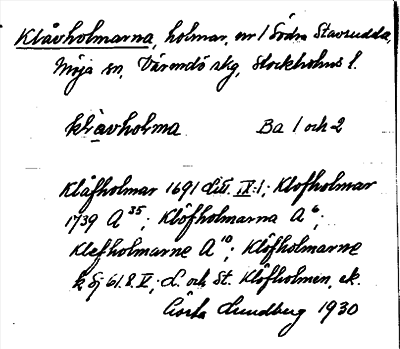 Klåvholmarna, holmar, nr 1 Södra Stavsudda,
Möja sn, Värmdö skg, Stockholms l.
klåavholma Ba 1 och 2
Klåfholmar 1691 Litt. IX:1; Klofholmar
1739 A 35; Klöfholmarna A 6;
Klefholmarne A 10; Klöfholmarne
k Sj 61.8.V; L. och St. Klöfholmen, ek.
Gösta Lundberg 1930